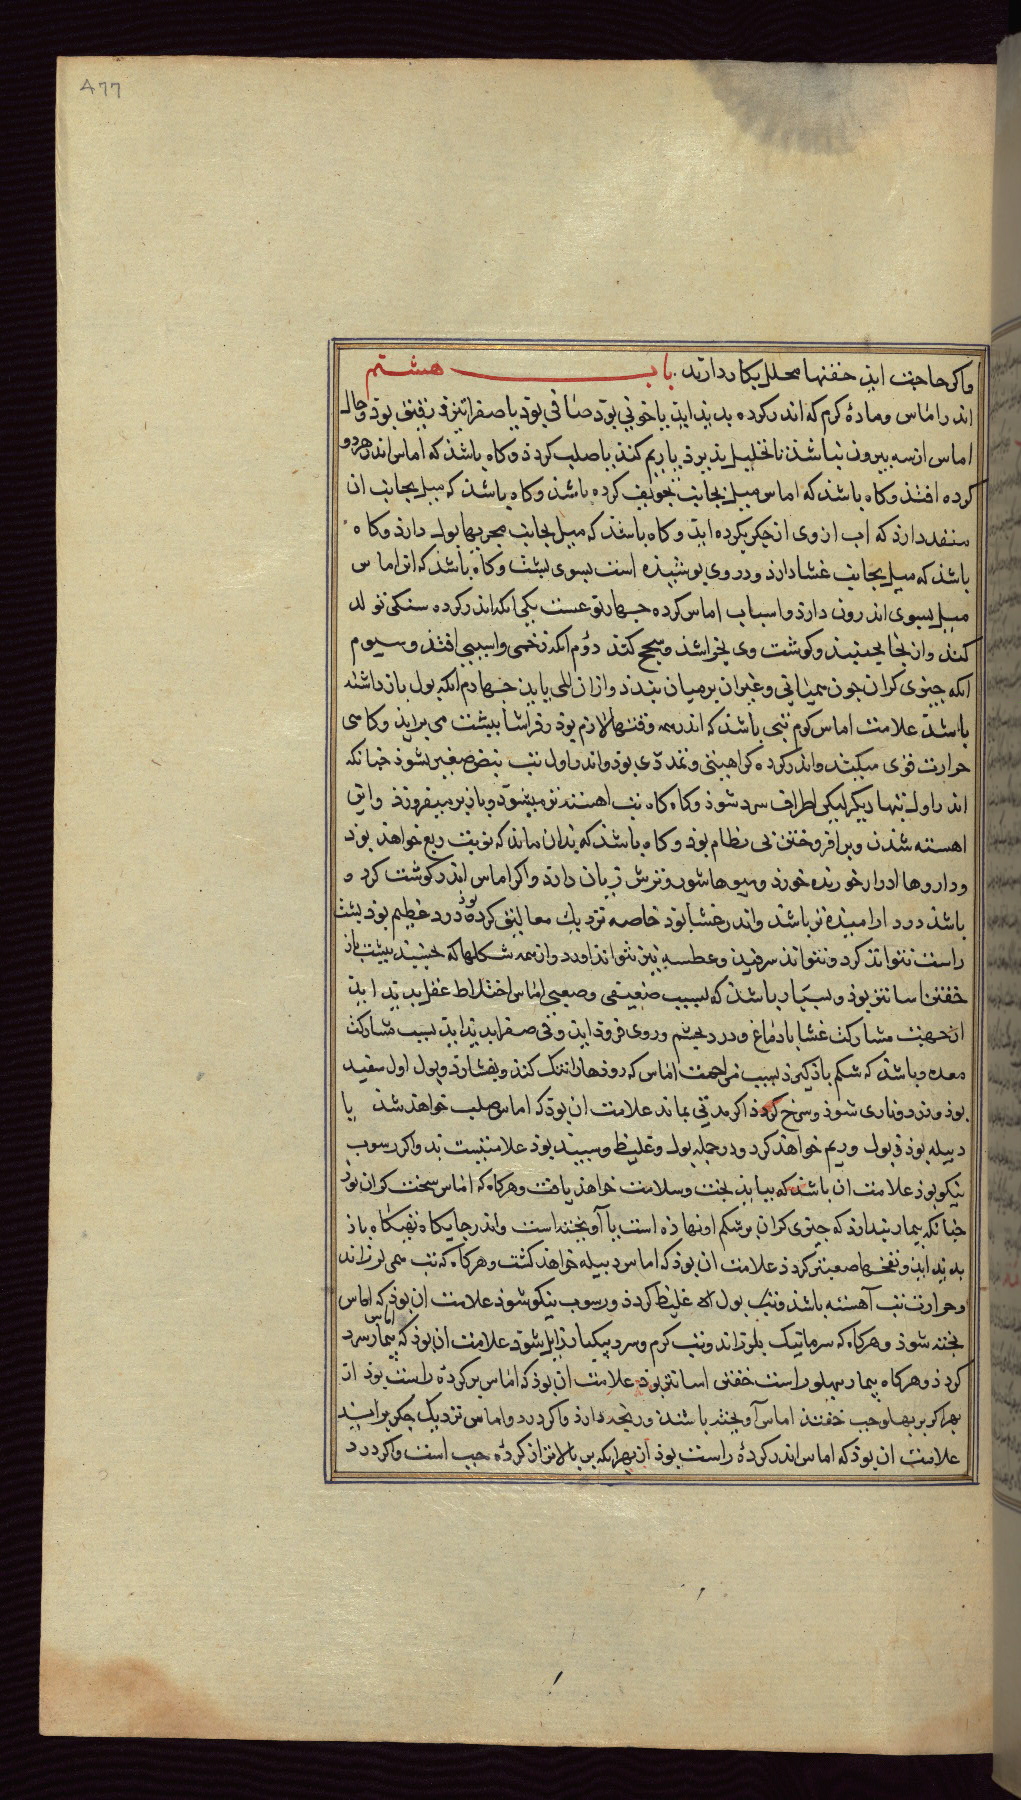 ٨٦٦
واکر حاجت ایذ حقنهاء محلل بکار دارند. باب هشتم
اندر اماس وماده کرم که اندر کرده بدید اید یا خونی بوذ صافی بوذ یا صفرا تیز رقیق بوذ وحال
اماس از سه بیرون نباشذ تا تحلیل بذیرذ یا ریم کند یا صلب کردذ وکاه باشذ که اماس اندر هر دو
کرده افتذ وکاه باشذ که اماس میل بجانب تجویف کرده باشذ وکاه باشذ که میل بجانب ان
منفذ دارذ که اب از وی از جکر بکرده ایذ وکاه باشذ که میل بجانب مجریهاء بول دارذ وکاه
باشذ که میل بجانب غشا دارذ ودر وی بوشیذه است بسوی بشت وکاه باشذ که ان اماس
میل بسوی اندرون دارذ واسباب اماس کرده جهار نوعست یکی انکه اندر کرده سنکی تولد
کند وان بجا بجنبذ وکوشت وی بخراشذ وسحج کند دوم انکه زخمی واسیبی افتذ وسیوم
انکه جیزی کران جون همیانی وغیر ان بر میان بندذ واز ان الم یابذ جهارم انکه بول باز داشته
باشذ علامت اماس کرم تبی باشذ که اندر همه وقتها لازم بوذ وفراشا ببشت می براید وکاهی
حرارت قوی میکند واندر کرده کرانی وتمددی بوذ واندر اول تب نبض صغیر بشوذ جنانکه
اندر اول تبهاء دیکر لیکن اطراف سرد شوذ وکاه کاه تب اهسته تر میشوذ وباز بر میفروزذ واین
اهسته شدن وبر افروختن بی نظام بوذ وکاه باشذ که بدان ماند که نوبت ربع خواهذ بوذ
وداروهاء ادرار خورنده خورذ ومیوهاء شور وترش زیان دارد واکر اماس اندر کوشت کرده
باشذ درد ارامیذه تر باشذ واندر غشا بوذ خاصه نزدیک معالیق کرده بوذ درد عظیم بوذ بشت
راست نتواند کرد ونتواند سرفیذ وعطسه نیز نتواند اورد واز همه شکلها که بخسبذ ببشت باز
خفتن اسانتر بوذ وبسیار باشذ که بسبب ضعیفی وصعبی اماس اختلاط عقل بدید ایذ
از جهت مشارکت غشا با دماغ ودرد بجشم وروی فرود ایذ وقی صفرا بدید ایذ بسبب مشارکت
معده وباشذ که شکم باز کیرذ بسبب مزاحمت اماس که رودها را تنک کند وبفشارذ وبول اول سفید
بوذ وزرد وناری شوذ وسرخ کردذ اکر مدتی بماند علامت ان بوذ که اماس صلب خواهذ شذ یا
دبیله بوذ در بول وریم خواهذ کرد ودر جمله بول وغلیظ وسبید بوذ علامتیست بد واکر رسوب
نیکو بوذ علامت ان باشذ که بیابذ بخت وسلامت خواهذ یافت وهرکاه که اماس سخت کران بوذ
جنانکه بیمار بندارذ که جیزی کران بر شکم او نهاذه است یا آویخته است واندر جایکاه تهیکاه باذ
بدید ایذ ونفخها صعبتر کردذ علامت ان بوذ که اماس دبیله خواهذ کشت وهرکاه که تب همی لرزاند
وحرارت تب آهسته باشذ وتب بول اه غلیظ کردذ ورسوب نیکو شوذ علامت ان بوذ که اماس
بخته شوذ وهرکاه که سرما نیک بلرزاند وتب کرم وسرد بیکبار زایل شوذ علامت ان بوذ که اماس بیمار سرد
کردذ وهرکاه بیمار ببهلو راست خفتن اسانتر بوذ علامت ان بوذ که اماس بر کرده راست بوذ از
بهر انکه بر بهلو جب خفتذ اماس آویخته باشذ ورنجه دارذ واکر درد واماس نزدیک جکر براید
علامت ان بوذ که اماس اندر کرده راست بوذ از بهر انکه بس بالاتر از کرده جب است واکر درد